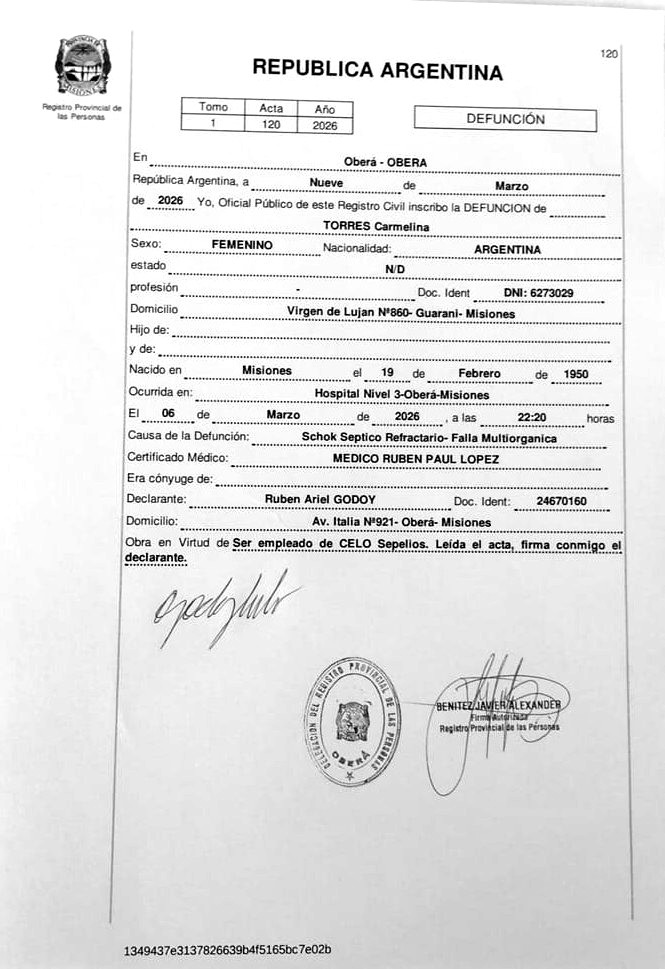 120
PROVINCIA DE
MISIONES
Registro Provincial de
las Personas
REPUBLICA ARGENTINA
Tomo Acta Año
1 120 2026
DEFUNCIÓN
En Oberá - OBERA
República Argentina, a Nueve de Marzo
de 2026 Yo, Oficial Público de este Registro Civil inscribo la DEFUNCION de
TORRES Carmelina
Sexo: FEMENINO Nacionalidad: ARGENTINA
estado N/D
profesión - Doc. Ident DNI: 6273029
Domicilio Virgen de Lujan Nº860- Guarani- Misiones
Hijo de:
y de:
Nacido en Misiones el 19 de Febrero de 1950
Ocurrida en: Hospital Nivel 3-Oberá-Misiones
El 06 de Marzo de 2026 , a las 22:20 horas
Causa de la Defunción: Schok Septico Refractario- Falla Multiorganica
Certificado Médico: MEDICO RUBEN PAUL LOPEZ
Era cónyuge de:
Declarante: Ruben Ariel GODOY Doc. Ident: 24670160
Domicilio: Av. Italia Nº921- Oberá- Misiones
Obra en Virtud de Ser empleado de CELO Sepelios. Leída el acta, firma conmigo el
declarante.
DELEGACION DEL REGISTRO PROVINCIAL DE LAS PERSONAS
OBERÁ
BENITEZ JAVIER ALEXANDER
Firma Autorizada
Registro Provincial de las Personas
1349437e3137826639b4f5165bc7e02b